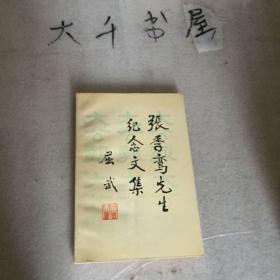 大千书屋
張季鸾先生
纪念文集
屈武